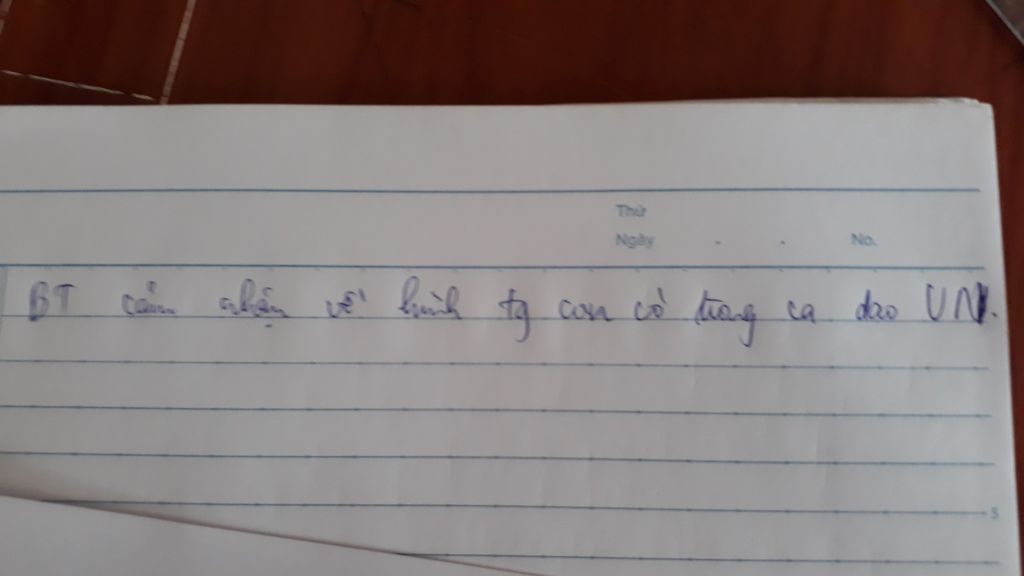 Thứ
Ngày . . No.
BT cảm nhận về hình tg con cò trong ca dao VN.
5